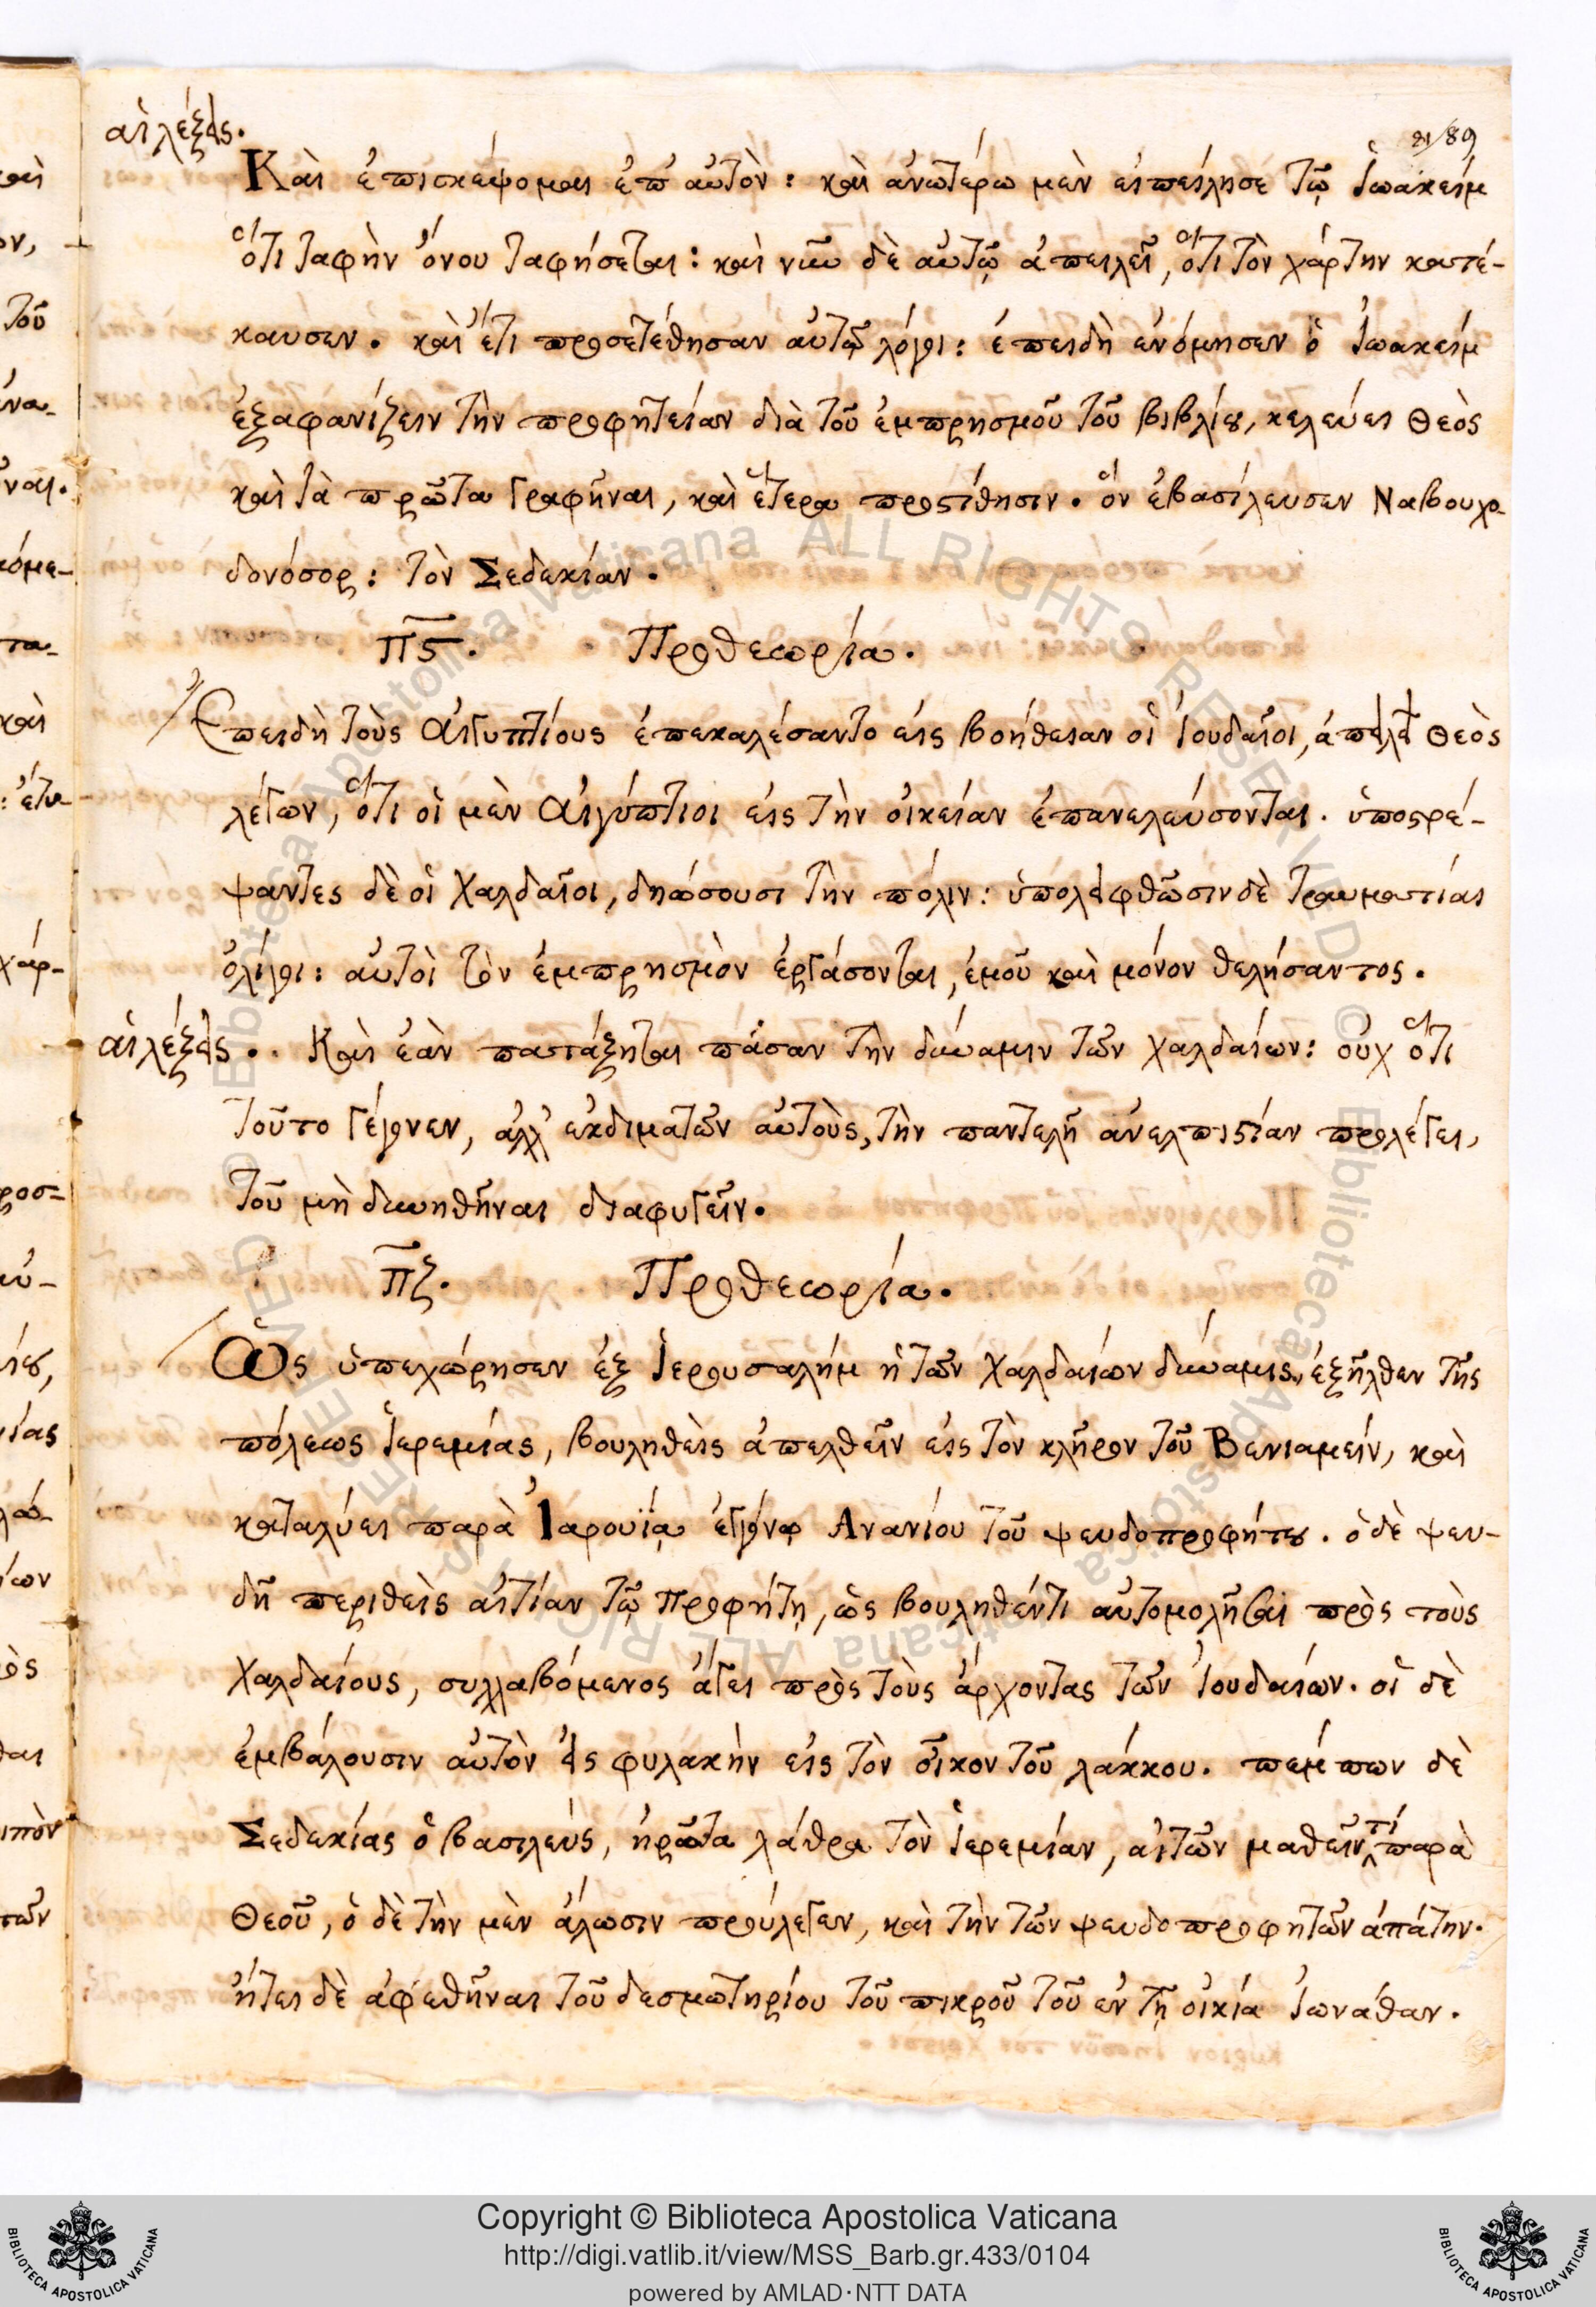 αἱ λέξεις.
81/89
Καὶ ἐπισκέψομαι ἐπ' αὐτὸν: καὶ ἀνωτέρω μὲν εἰπείλησε τῷ Ἰωακεὶμ
ὅτι ταφὴν ὄνου ταφήσεται: καὶ νῦν δὲ αὐτῷ ἀπειλεῖ, ὅτι τὸν χάρτην κατέ-
καυσεν. καὶ ἔτι προσετέθησαν αὐτῷ λόγοι: ἐπειδὴ ἐνόμησεν ὁ Ἰωακεὶμ
ἐξαφανίζειν τὴν προφητείαν διὰ τοῦ ἐμπρησμοῦ τοῦ βιβλίου, κελεύει Θεὸς
καὶ τὰ πρῶτα γραφῆναι, καὶ ἕτερα προστίθησιν. ὃν ἐβασίλευσεν Ναβουχο-
δονόσορ: τὸν Σεδεκίαν.
πϛ. Προθεωρία.
Ἐπειδὴ τοὺς Αἰγυπτίους ἐπεκαλέσαντο εἰς βοήθειαν οἱ Ἰουδαῖοι, ἀπειλεῖ Θεὸς
λέγων, ὅτι οἱ μὲν Αἰγύπτιοι εἰς τὴν οἰκείαν ἐπανελεύσονται. ὑποστρέ-
ψαντες δὲ οἱ Χαλδαῖοι, δηώσουσι τὴν πόλιν: ὑπολειφθῶσιν δὲ τραυματίαι
ὀλίγοι: αὐτοὶ τὸν ἐμπρησμὸν ἐργάσονται, ἐμοῦ καὶ μόνον θελήσαντος.
αἱ λέξεις. Καὶ ἐὰν πατάξηται πᾶσαν τὴν δύναμιν τῶν Χαλδαίων: οὐχ ὅτι
τοῦτο γέγονεν, ἀλλ' ἐκδιματῶν αὐτοὺς, τὴν παντελῆ ἀνελπιστίαν προλέγει,
τοῦ μὴ δυνηθῆναι διαφυγεῖν.
πζ. Προθεωρία.
Ὡς ὑπεχώρησεν ἐξ Ἱερουσαλήμ ἡ τῶν Χαλδαίων δύναμις, ἐξῆλθεν τῆς
πόλεως Ἱερεμίας, βουληθεὶς ἀπελθεῖν εἰς τὸν κλῆρον τοῦ Βενιαμείν, καὶ
καταλύει παρὰ Ἰαρουΐᾳ ἐγγόνῳ Ἀνανίου τοῦ ψευδοπροφήτου. ὁ δὲ ψευ-
δῆ περιθεὶς αἰτίαν τῷ προφήτῃ, ὡς βουληθέντι αὐτομολῆσαι πρὸς τοὺς
Χαλδαίους, συλλαβόμενος ἄγει πρὸς τοὺς ἄρχοντας τῶν Ἰουδαίων. οἱ δὲ
ἐμβάλουσιν αὐτὸν εἰς φυλακὴν εἰς τὸν οἶκον τοῦ λάκκου. πέμπων δὲ
Σεδεκίας ὁ βασιλεὺς, ἠρῶτα λάθρα τὸν Ἱερεμίαν, αἰτῶν μαθεῖν τί παρὰ
Θεοῦ, ὁ δὲ τὴν μὲν ἅλωσιν προύλεγεν, καὶ τὴν τῶν ψευδοπροφητῶν ἀπάτην.
ᾔτει δὲ ἀφεθῆναι τοῦ δεσμωτηρίου τοῦ πικροῦ τοῦ ἐν τῇ οἰκίᾳ Ἰωνάθαν.
Copyright © Biblioteca Apostolica Vaticana
http://digi.vatlib.it/view/MSS_Barb.gr.433/0104
powered by AMLAD·NTT DATA